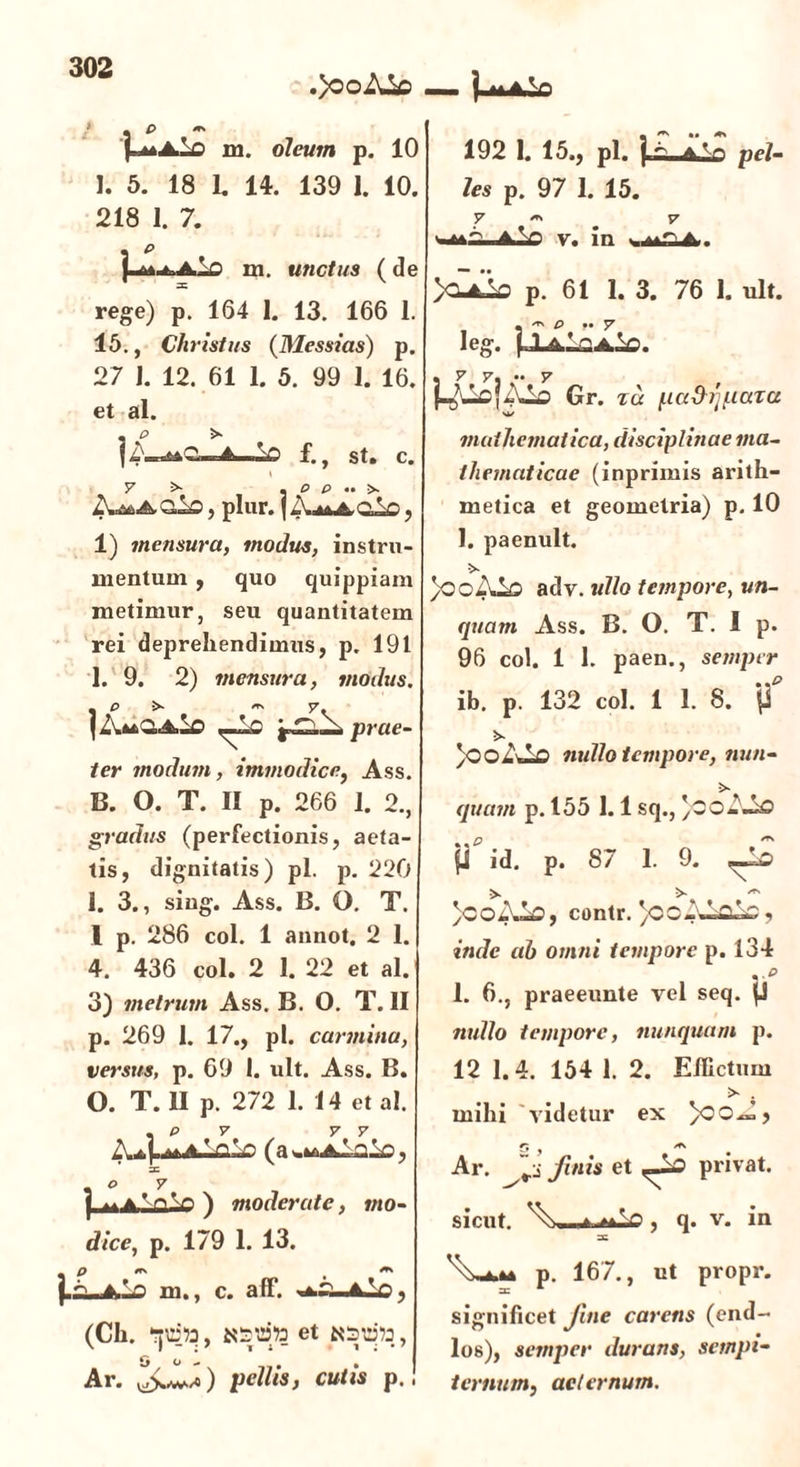 302
.ܡܬܘܡ — ܡܫܚܐ
ܡܫܚܐ m. oleum p. 10
l. 5. 18 l. 14. 139 l. 10.
218 l. 7.
ܡܫܝܚܐ m. unctus (de
rege) p. 164 l. 13. 166 l.
15., Christus (Messias) p.
27 l. 12. 61 l. 5. 99 l. 16.
et al.
ܡܫܘܚܬܐ f., st. c.
ܡܘܫܚܬ, plur. ܡܘܫܚܬܐ,
1) mensura, modus, instru-
mentum, quo quippiam
metimur, seu quantitatem
rei deprehendimus, p. 191
l. 9. 2) mensura, modus.
ܠܒܪ ܡܢ ܡܫܘܚܬܐ prae-
ter modum, immodice, Ass.
B. O. T. II p. 266 l. 2.,
gradus (perfectionis, aeta-
tis, dignitatis) pl. p. 220
l. 3., sing. Ass. B. O. T.
I p. 286 col. 1 annot. 2 l.
4. 436 col. 2 l. 22 et al.
3) metrum Ass. B. O. T. II
p. 269 l. 17., pl. carmina,
versus, p. 69 l. ult. Ass. B.
O. T. II p. 272 l. 14 et al.
ܡܡܫܚܐܝܬ (a ܡܡܫܚ,
ܡܡܫܚܐ) moderate, mo-
dice, p. 179 l. 13.
ܡܫܟܐ m., c. aff. ܡܫܟܗ,
(Ch. מְשַׁךְ, מַשְׁכָּא et מִשְׁכָּא,
Ar. مَسْكٌ) pellis, cutis p.
192 l. 15., pl. ܡܫܟܐ pel-
les p. 97 l. 15.
ܡܫܟܚ v. in ܫܟܚ.
p. 61 l. 3. 76 l. ult.
leg. ܡܫܡܠܝܐ.
Gr. τὰ μαθήματα
mathematica, disciplinae ma-
thematicae (inprimis arith-
metica et geometria) p. 10
l. paenult.
ܡܬܘܡ adv. ullo tempore, un-
quam Ass. B. O. T. I p.
96 col. 1 l. paen., semper
ib. p. 132 col. 1 l. 8. ܠܐ
ܡܬܘܡ nullo tempore, nun-
quam p. 155 l. 1 sq., ܡܬܘܡ
ܠܐ id. p. 87 l. 9. ܡܢ
ܡܬܘܡ, contr. ܡܡܬܘܡ,
inde ab omni tempore p. 134
l. 6., praeeunte vel seq. ܠܐ
nullo tempore, nunquam p.
12 l. 4. 154 l. 2. Effictum
mihi videtur ex ܬܘܡ,
Ar. finis et ܡܢ privat.
sicut. ܡܚܝܠ, q. v. in
ܚܝܠ p. 167., ut propr.
significet fine carens (end-
los), semper durans, sempi-
ternum, aeternum.